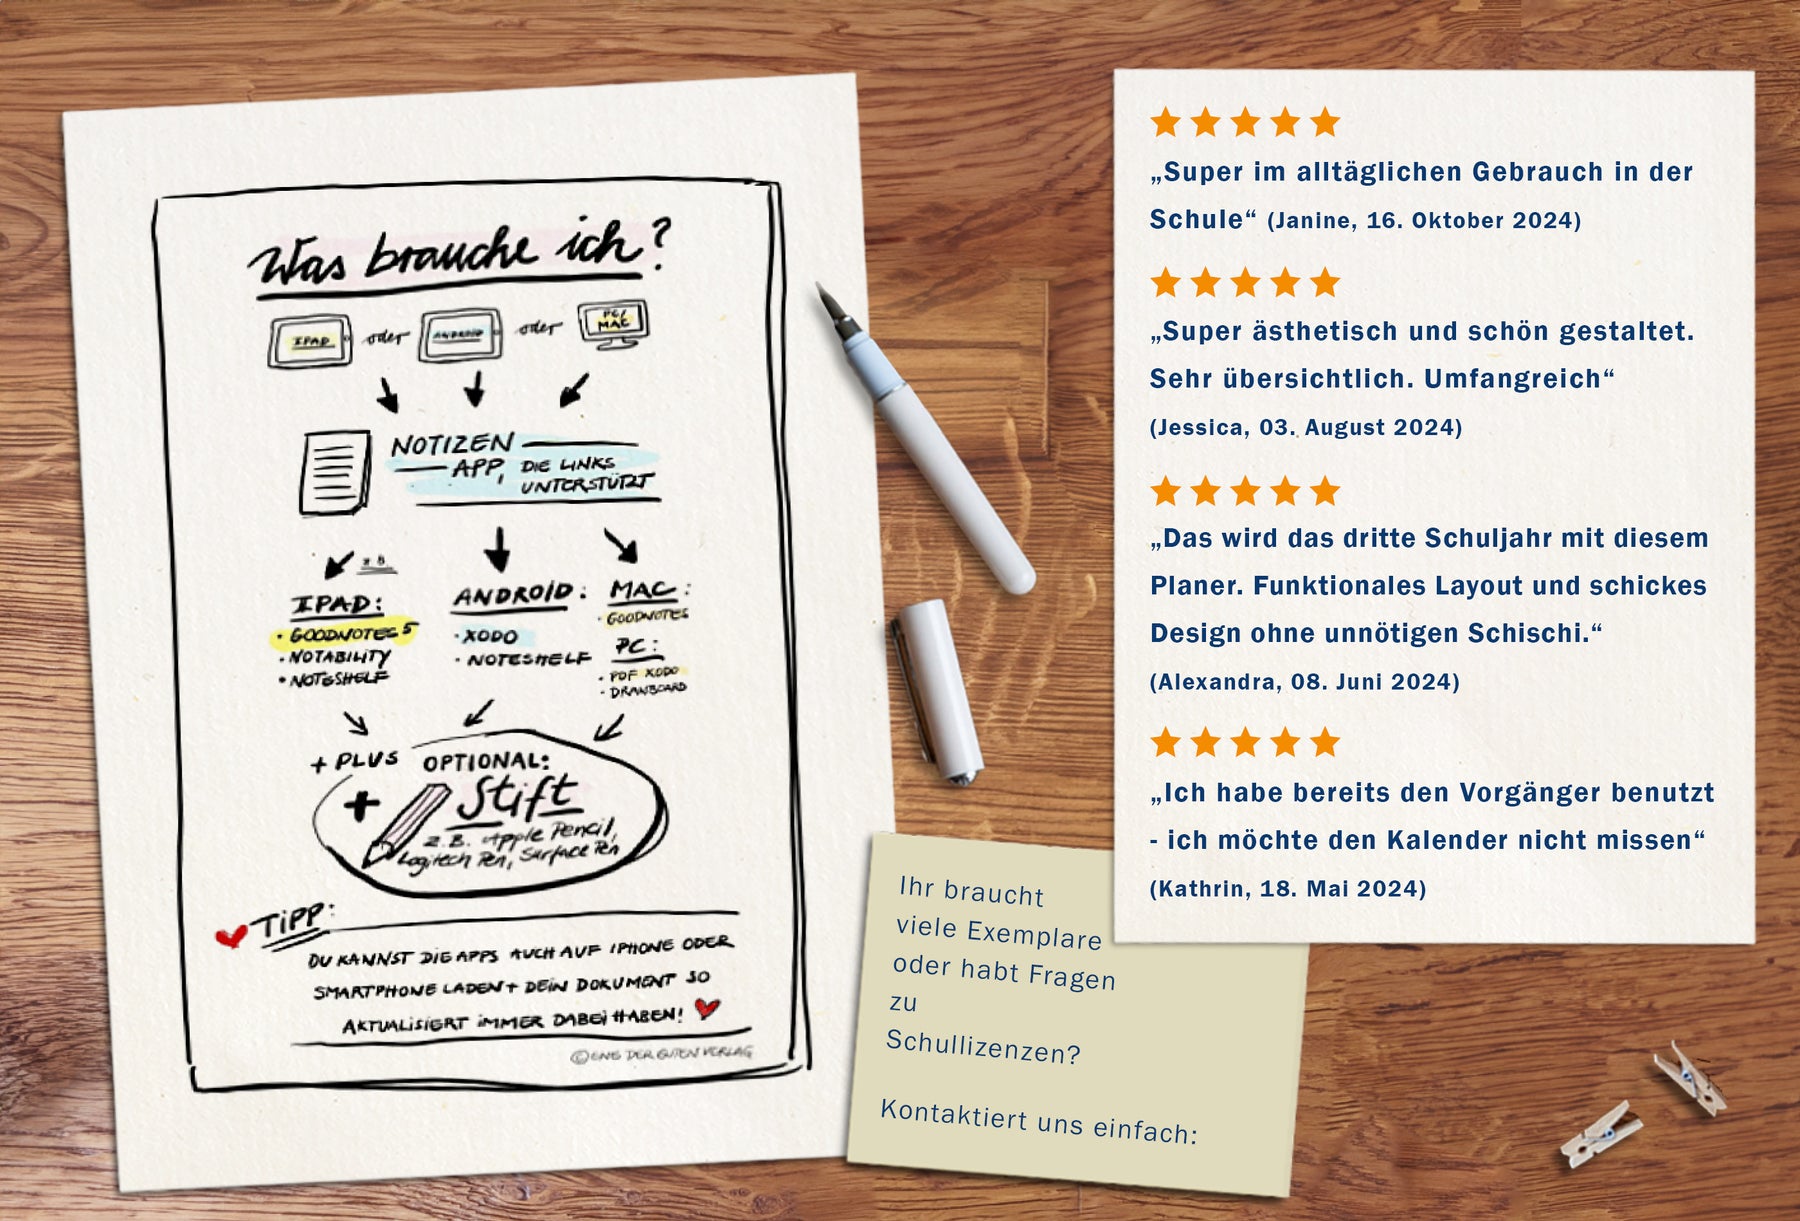 Was brauche ich?
IPAD oder ANDROID oder PC/
MAC
NOTIZEN
APP, DIE LINKS
UNTERSTÜTZT
z.B.
IPAD:
• GOODNOTES 5
• NOTABILITY
• NOTESHELF
ANDROID:
• XODO
• NOTESHELF
MAC:
• GOODNOTES
PC:
• PDF XODO
• DRAWBOARD
+ PLUS OPTIONAL:
+ Stift
z.B. Apple Pencil,
Logitech Pen, Surface Pen
TIPP:
DU KANNST DIE APPS AUCH AUF IPHONE ODER
SMARTPHONE LADEN + DEIN DOKUMENT SO
AKTUALISIERT IMMER DABEI HABEN!
© EINE DER GUTEN VERLAG
„Super im alltäglichen Gebrauch in der
Schule“ (Janine, 16. Oktober 2024)
„Super ästhetisch und schön gestaltet.
Sehr übersichtlich. Umfangreich“
(Jessica, 03. August 2024)
„Das wird das dritte Schuljahr mit diesem
Planer. Funktionales Layout und schickes
Design ohne unnötigen Schischi.“
(Alexandra, 08. Juni 2024)
„Ich habe bereits den Vorgänger benutzt
- ich möchte den Kalender nicht missen“
(Kathrin, 18. Mai 2024)
Ihr braucht
viele Exemplare
oder habt Fragen
zu
Schullizenzen?
Kontaktiert uns einfach: